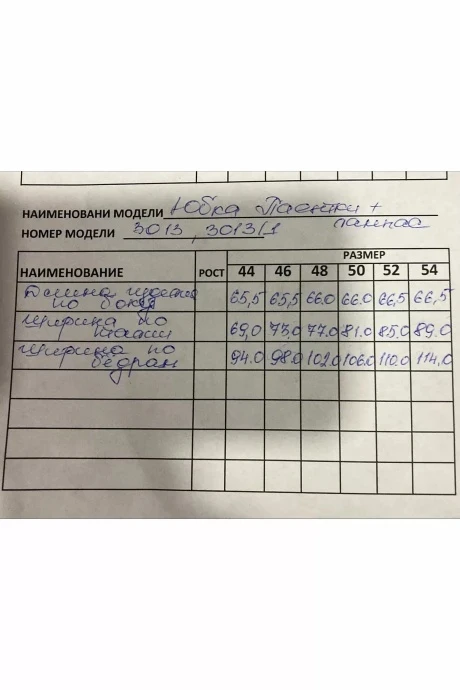 НАИМЕНОВАНИ МОДЕЛИ Юбка Паетки +
лампас
НОМЕР МОДЕЛИ 3013, 3013/1
РАЗМЕР
НАИМЕНОВАНИЕ РОСТ 44 46 48 50 52 54
Длина изделия
по боку 65,5 65,5 66.0 66.0 66,5 66,5
Ширина по
талии 69,0 73.0 77.0 81.0 85.0 89.0
Ширина по
бедрам 94.0 98.0 102.0 106.0 110.0 114.0